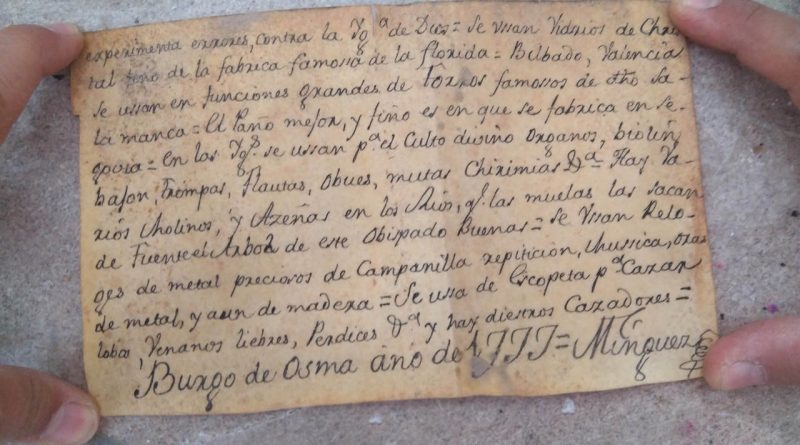 experimenta errores, contra la Ygª de Dios = Se ussan Vidrios de Chris
tal fino de la fabrica famosa de la florida = Bilbado, Valencia
se ussan en funciones grandes de torros famossos de dho Sa-
lamanca = El Paño mejor, y fino es en que se fabrica en Se-
govia = en las Ygªˢ se ussan pª el Culto divino Organos, biolin
bajon, trompas, Flautas, Obues, mutas Chirimias &ª = Hay Va-
rios Molinos, y Azeñas en los Rios, q. las muelas las sacan
de Fuentelarbol de este Obispado Buenas = se Vssan Relo-
ges de metal preciosos de Campanilla repiticion, Mussica,
de metal, y aun de madera = Se ussa de Escopeta pª Cazar
lobos, Venanos liebres, Perdices &ª y hay diestros Cazadores =
Burgo de Osma año de 1777 = Minguez